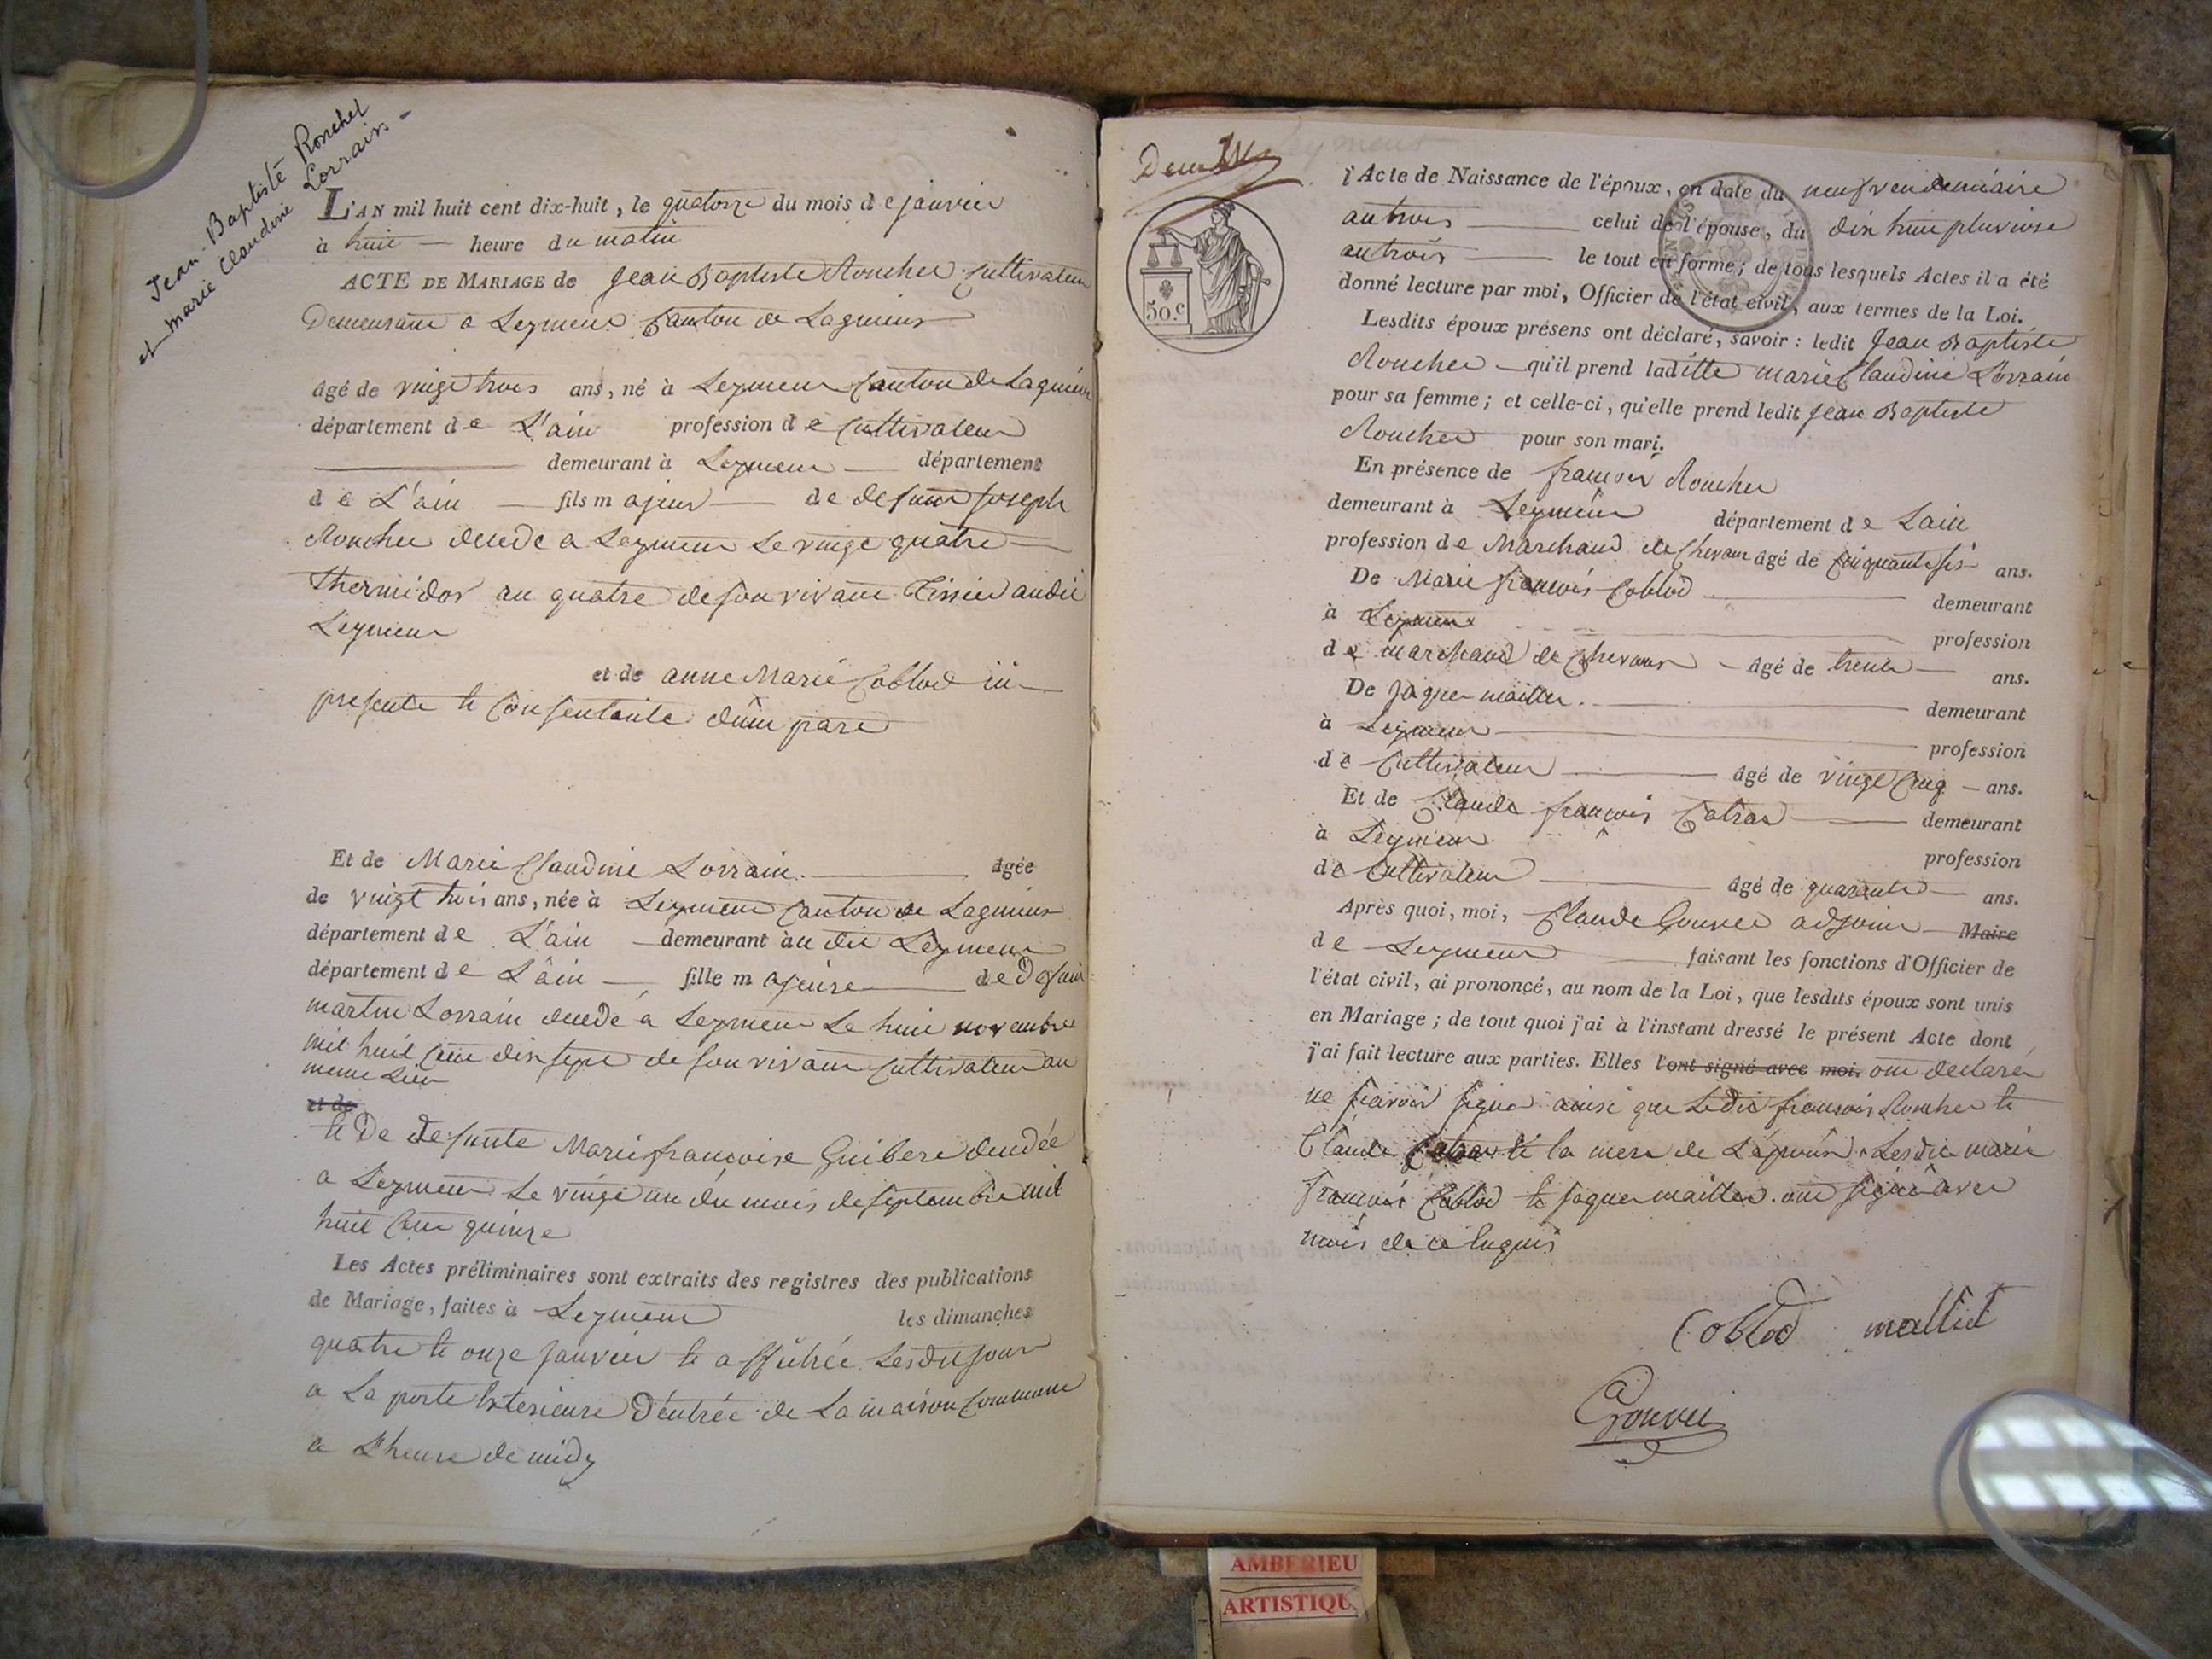 Jean-Baptiste Ronchet
et Marie Claudine Lorrain -
L'AN mil huit cent dix-huit, le quatorze du mois de janvier
à huit heure du matin
ACTE DE MARIAGE de Jean Baptiste Roucher Cultivateur
Demeurant a Leymeut Canton de Lagnieux
âgé de vingt trois ans, né à Leyment Canton de Lagnieu
département de L'ain profession de Cultivateur
demeurant à Leyment département
de L'ain fils majeur de defunt joseph
Roucher decede a Leyment Le vingt quatre
thermidor an quatre de son vivant Tissier audit
Leyment
et de anne Marie Coblod ici
presente te Consentante d'une pare
Et de Marie Claudine Lorrain. âgée
de vingt trois ans, née à Leyment Canton de Lagnieux
département de L'ain demeurant au dit Leyment
département de L'ain fille majeure de Defunt
martin Lorrain decedé a Leyment Le huit novembre
mil huit Cent dix sept de son vivant Cultivateur au
meme Lieu
et de
te De defunte Marie françoise Guibert decedée
a Leyment Le vingt un du mois de septembre mil
huit Cent quinze
Les Actes préliminaires sont extraits des registres des publications
de Mariage, faites à Leyment les dimanches
quatre te onze janvier te affichée Lesdit jour
a La porte Exterieure D'entrée de La maison Commune
a L'heure de midy
Deux
50.c
l'Acte de Naissance de l'époux, en date du neuf vendemiaire
an trois celui de l'épouse, du dix huit pluviose
an trois le tout en forme; de tous lesquels Actes il a été
donné lecture par moi, Officier de l'état civil, aux termes de la Loi.
Lesdits époux présens ont déclaré, savoir: ledit Jean Baptiste
Roucher qu'il prend laditte marie Claudine Lorrain
pour sa femme; et celle-ci, qu'elle prend ledit Jean Baptiste
Roucher pour son mari.
En présence de françois Roucher
demeurant à Leyment département de Lain
profession de Marchand de Chevaux âgé de Cinquante six ans.
De Marie françois Coblod demeurant
à Leyment profession
de marchand de Chevaux âgé de trente ans.
De jaques maillet. demeurant
à Leyment profession
de Cultivateur âgé de vingt Cinq ans.
Et de Claude françois Catras demeurant
à Leyment profession
de Cultivateur âgé de quarante ans.
Après quoi, moi, Claude Gouvet adjoint Maire
de Leyment faisant les fonctions d'Officier de
l'état civil, ai prononcé, au nom de la Loi, que lesdits époux sont unis
en Mariage; de tout quoi j'ai à l'instant dressé le présent Acte dont
j'ai fait lecture aux parties. Elles l'ont signé avec moi. ont declaré
ne scavoir signer ainsi que Ledit françois Roucher te
Claude Catras te la mere de L'epoux. Lesdit marie
françois Coblod te jaques maillet. ont signé avec
mois de ce Enquis
Coblod mallist
Gouvet
AMBERIEU
ARTISTIQU